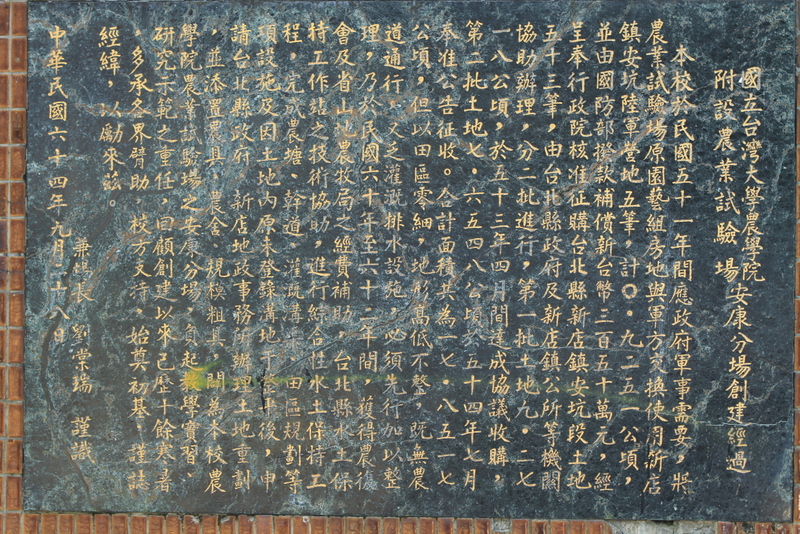 國立台灣大學農學院
附設農業試驗場安康分場創建經過
本校於民國五十一年間應政府軍事需要，將
農業試驗場原園藝組房地與軍方交換使用新店
鎮安坑陸軍營地五筆，計〇．九一五一公頃，
並由國防部撥款補償新台幣三百五十萬元，經
呈奉行政院核准征購台北縣新店鎮安坑段土地
五十三筆，由台北縣政府及新店鎮公所等機關
協助辦理，分二批進行，第一批土地九．二七
一八公頃，於五十三年四月間達成協議收購，
第二批土地七．六五四八公頃於五十四年七月
奉准公告征收。合計面積共為一七．八五一七
公頃，但以田區零細，地形高低不整，既無農
道通行，又乏灌溉排水設施，必須先行加以整
理，乃於民國六十年至六十二年間，獲得農復
會及省山地農牧局之經費補助，台北縣水土保
持工作站之技術協助，進行綜合性水土保持工
程，完成農塘、幹道、灌溉溝、田區規劃等
項設施及因土地內原未登錄溝地丁等甲後，申
請台北縣政府、新店地政事務所辦理土地重劃
，並添置農具、農舍、規模粗具，闢為本校農
學院農業試驗場之安康分場，負起教學實習、
研究示範之重任，回顧創建以來已歷十餘寒暑
，多承各界臂助，校方支持，始奠初基，謹誌
經緯，以勵來茲。
兼場長　劉棠瑞　謹識
中華民國六十四年九月二十八日